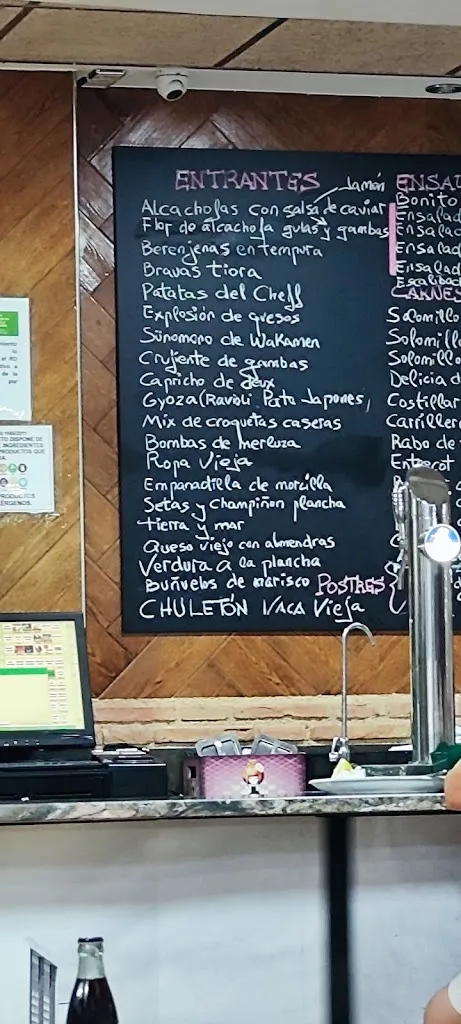 ENTRANTES
Jamón
Alcachofas con salsa de caviar
Flor de alcachofa gulas y gambas
Berenjenas en tempura
Bravas tiora
Patatas del Cheff
Explosión de quesos
Sünomono de Wakamen
Crujente de gambas
Capricho de deux
Gyoza (Ravioli Pato Japones)
Mix de croquetas caseras
Bombas de merluza
Ropa Vieja
Empanadilla de morzilla
Setas y Champiñon plancha
tierra y mar
Queso viejo con almendras
Verdura a la plancha
Buñuelos de marisco
CHULETÓN VACA Vieja
POSTRES
ENSAL
Bonito
Ensalad
Ensalad
Ensalad
Ensalad
Escalibad
CARNES
Solomillo
Solomillo
Solomillo
Delicia d
Costillar
Carriller
Rabo de
Entrecot